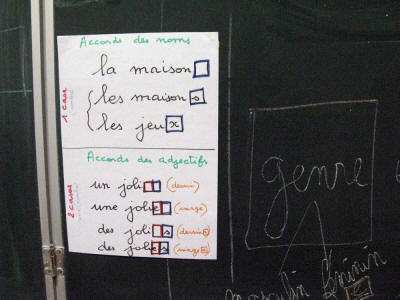 Accords des noms
1 case
la maison
les maisons
les jeux
Accords des adjectifs
2 cases
un joli (dessin)
une jolie (image)
des jolis (dessins)
des jolies (images)
genre
masculin féminin